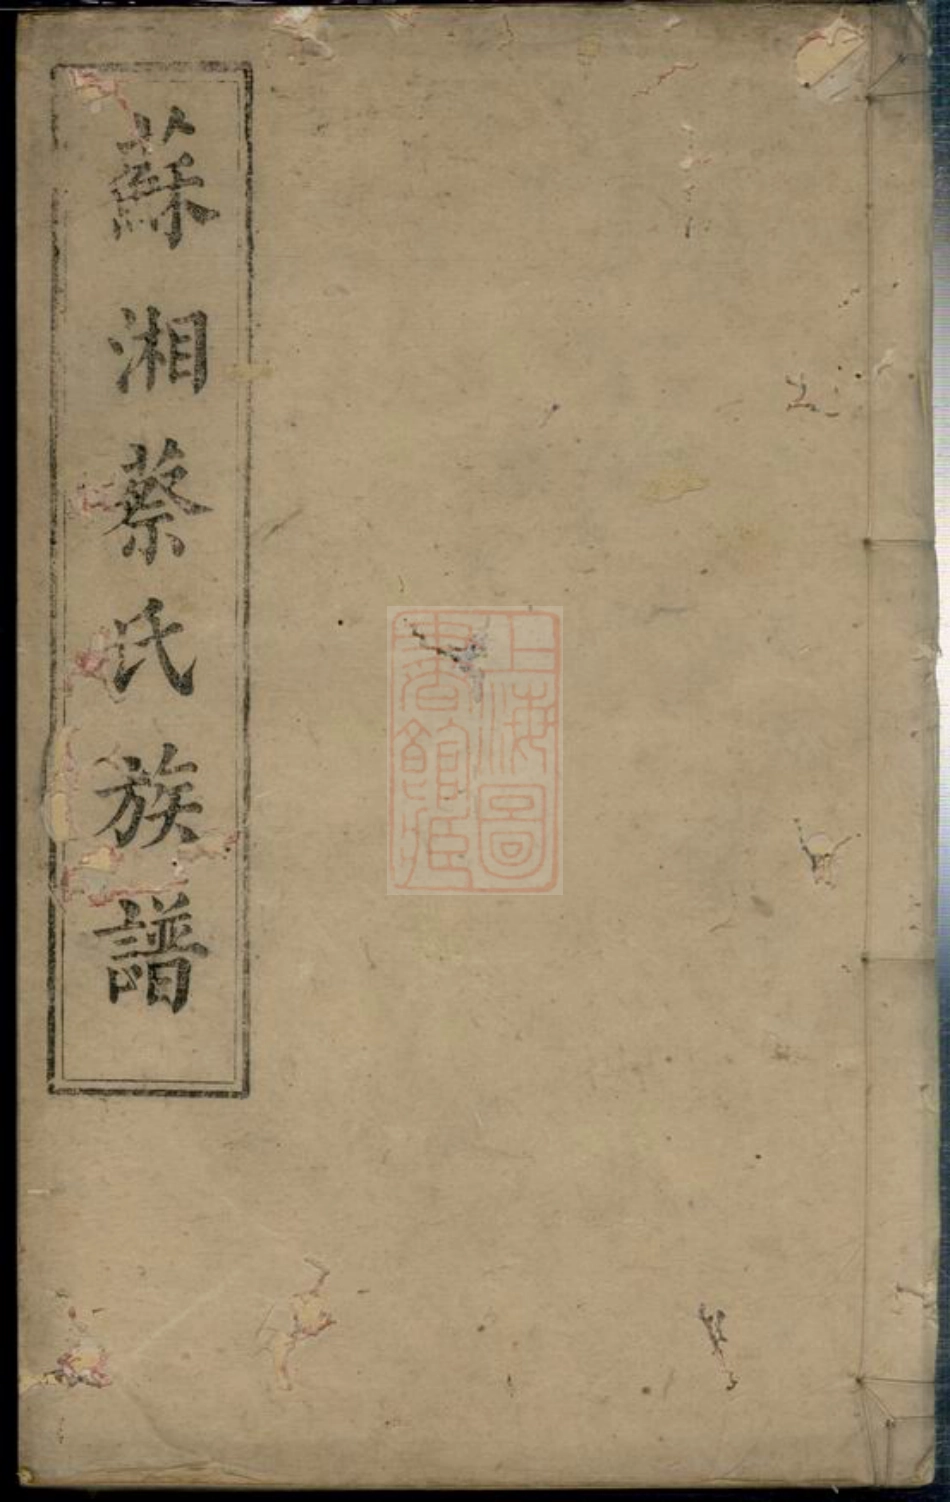 蘇湘蔡氏族譜
上海圖
書館藏